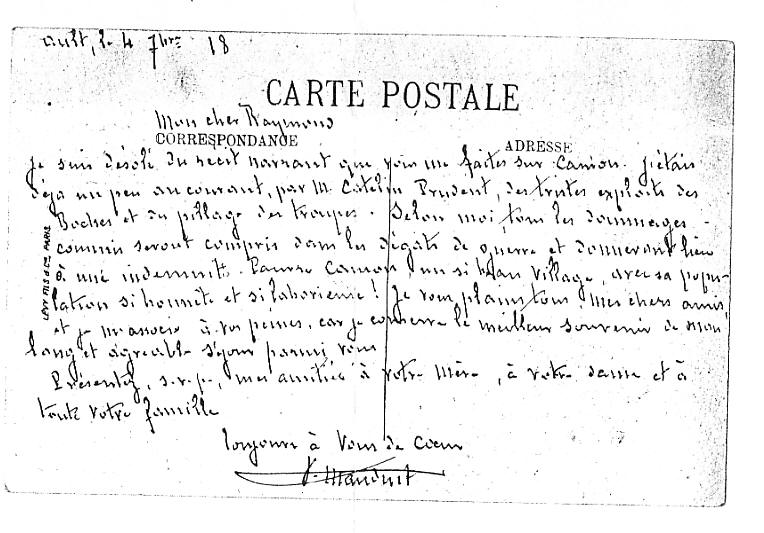 ault, le 4 7bre 18
CARTE POSTALE
Mon cher Raymond
CORRESPONDANCE
ADRESSE
Je suis désolé du récit navrant que vous me faites sur Camon. J'étais
déja un peu au courant, par M. Catelin Prudent, des tristes exploits des
Boches et du pillage des troupes. Selon moi, tous les dommages
commis seront compris dans les dégâts de guerre et donneront lieu
à une indemnité. Pauvre Camon, un si beau village, avec sa popu-
lation si honnête et si laborieuse! Je vous plains tous, mes chers amis,
et je m'associe à vos peines, car je conserve le meilleur souvenir de mon
long et agréable séjour parmi vous
Présentez, s.v.p., mes amitiés à votre mère, à votre dame et à
toute votre famille
Toujours à Vous de Cœur
Mauduit
LEVY FILS & Cie PARIS